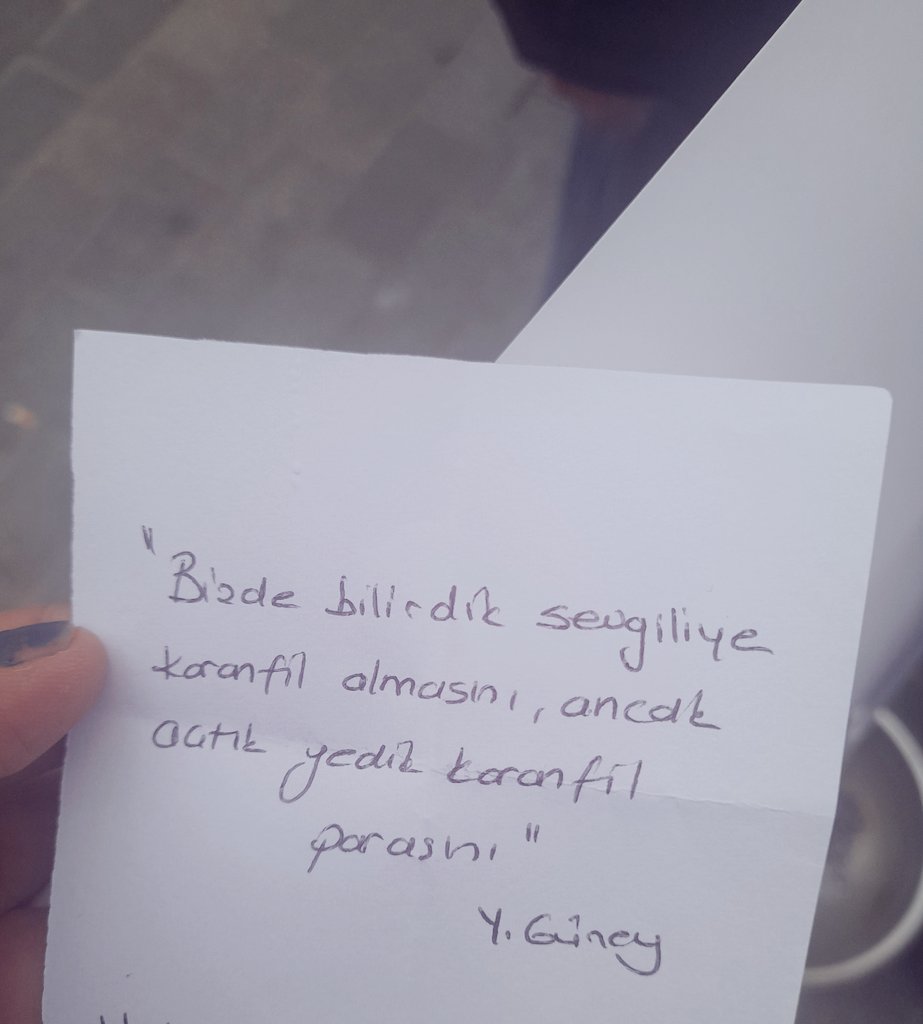 "Bizde bilirdik sevgiliye
karanfil almasını, ancak
actık yedik karanfil
parasını"
Y. Güney